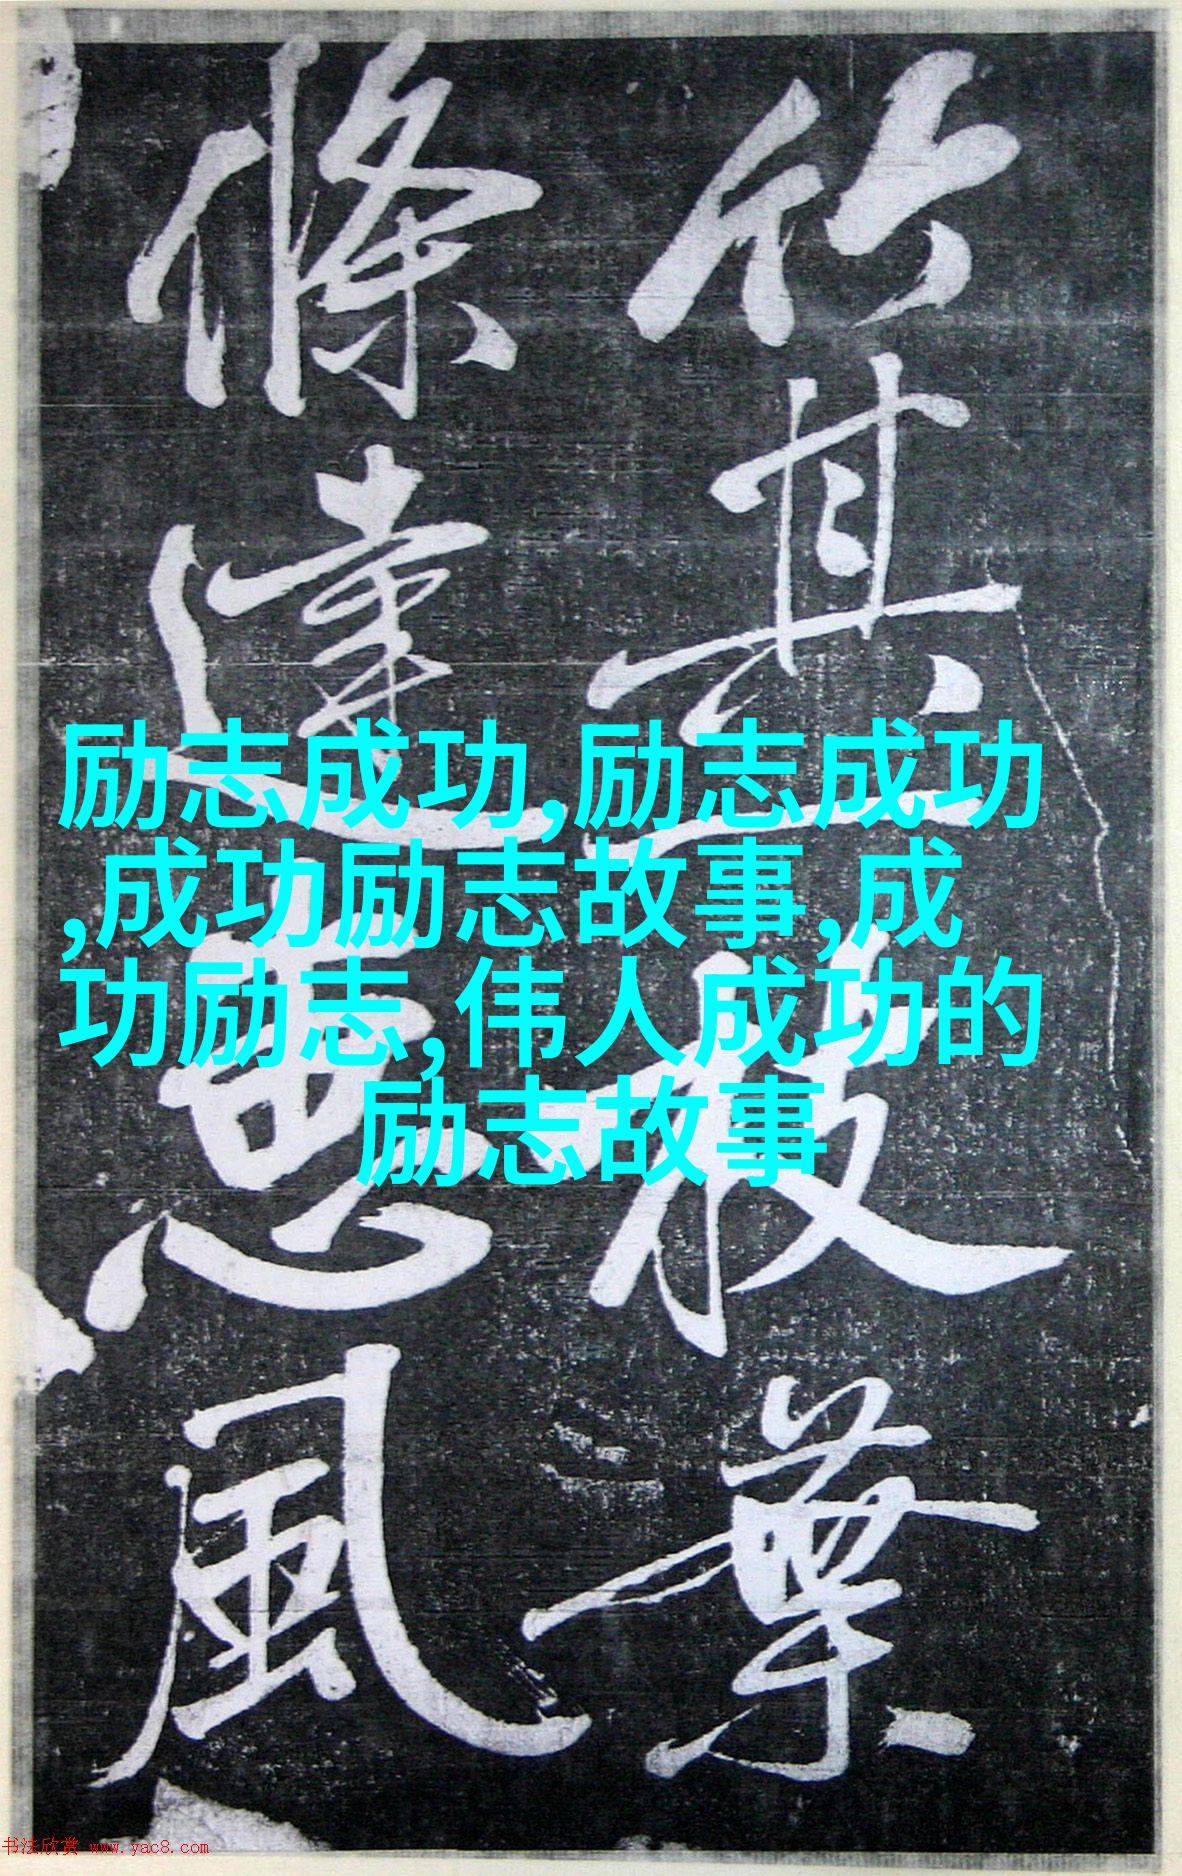 竹其枝葉
條達惠風
励志成功,励志成功
,成功励志故事,成
功励志,伟人成功的
励志故事
书法欣赏 www.yac8.com